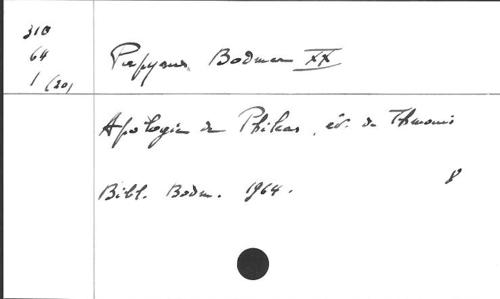 310
64
1 (20)
Papyrus Bodmer XX
Apologie de Philéas, év. de Thmouis
Bibl. Bodm. 1964.
8